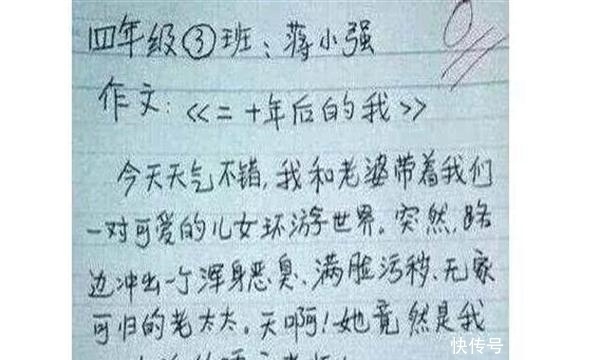 四年级③班：蒋小强
0
作文：《二十年后的我》
今天天气不错，我和老婆带着我们
一对可爱的儿女环游世界。突然，路
边冲出一个浑身恶臭、满脸污秽、无家
可归的老太太。天啊！她竟然是我
快传号